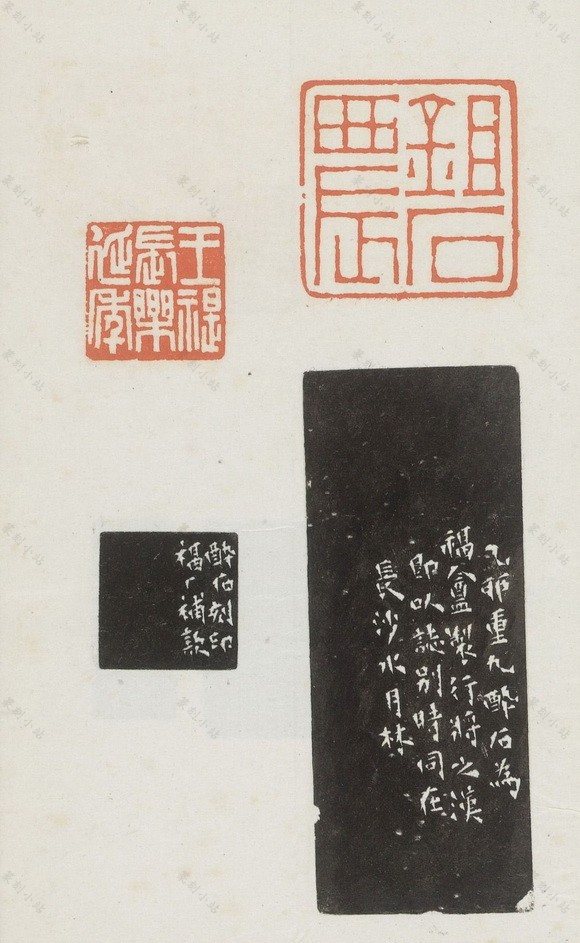 鉏石
農
乙卯重九酔石為
福盦製行將之漢
即以誌別時同在
長沙水月林
王禔
長樂
延年
酔石刻印
福厂補款
篆刻小站